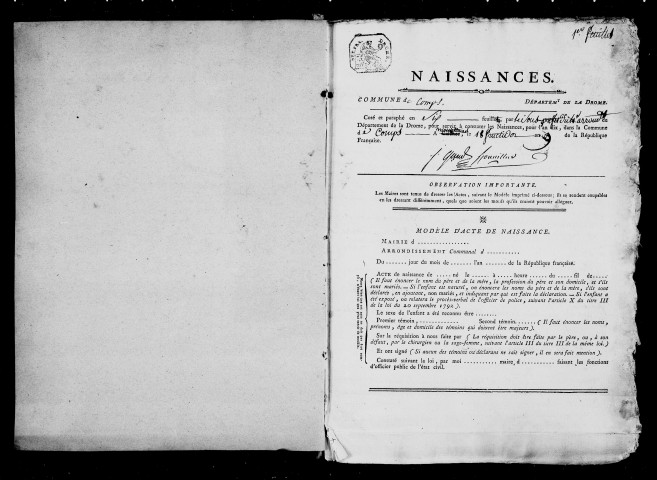 1er feuillet
NAISSANCES.
COMMUNE de Comps. DÉPARTEMt DE LA DROME.
Coté et paraphé en Six feuillets par
Département de la Drome, pour servir à constater les Naissances, pour l'an dix, dans la Commune
d e Comps A le 18 fructidor an 9 de la République
Française.
OBSERVATION IMPORTANTE.
Les Maires sont tenus de dresser les Actes, suivant le Modèle imprimé ci-dessous; ils se rendent coupables
en les dressant différemment, quels que soient les motifs qu'ils croient pouvoir alléguer.
MODÈLE D'ACTE DE NAISSANCE.
MAIRIE d ..................
ARRONDISSEMENT Communal d ...........
Du ........ jour du mois de ........ l'an ........ de la République française.
ACTE de naissance de ...... né le ...... à ...... heure ...... du ...... fil de.....
( Il faut énoncer le nom du père et de la mère, la profession du père et son domicile, et s'ils
sont mariés. — Si l'enfant est naturel, on énoncera les noms du père et de la mère, s'ils sont
déclarés, en ajoutant, non mariés, et indiquant par qui est faite la déclaration. — Si l'enfant a
été exposé, on relatera le procès-verbal de l'officier de police, suivant l'article X du titre III
de la loi du 20 septembre 1792.)
Le sexe de l'enfant a été reconnu être ........
Premier témoin, .............. Second témoin. ........ ( Il faut énoncer les noms,
prénoms, âge et domicile des témoins qui doivent être majeurs ).
Sur la réquisition à nous faite par ( La réquisition doit être faite par le père, ou, à son
défaut, par le chirurgien ou la sage-femme, suivant l'article III du titre III de la même loi.)
Et ont signé ( Si aucun des témoins ou déclarans ne sait signer, il en sera fait mention ).
Constaté suivant la loi, par moi ........... maire, d .......... faisant les fonctions
d'officier public de l'état civil.